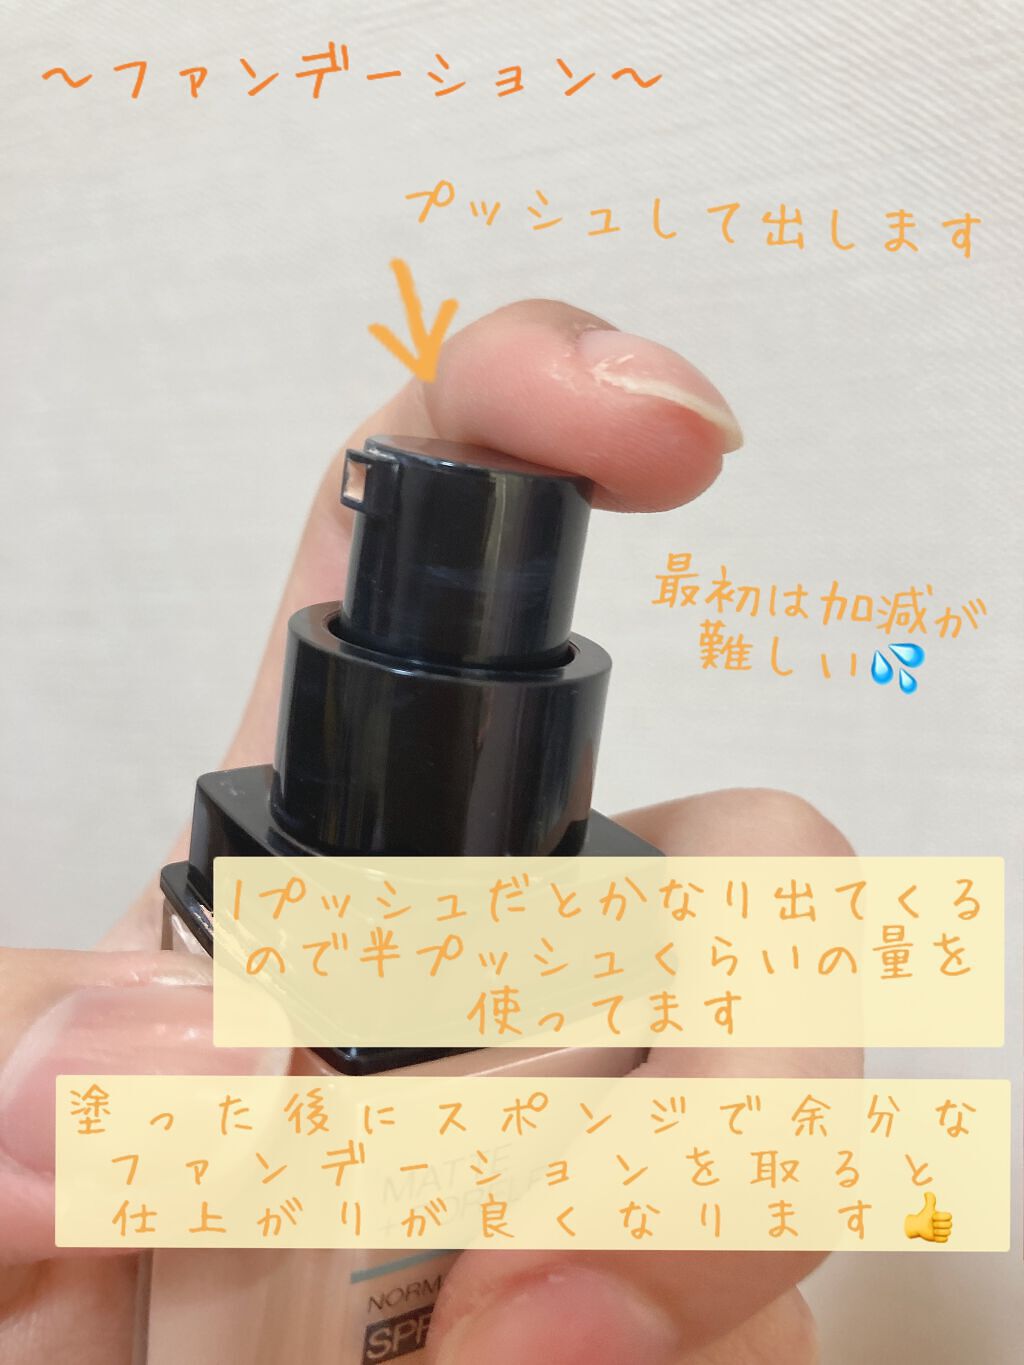 ～ファンデーション～
プッシュして出します
最初は加減が
難しい💦
1プッシュだとかなり出てくる
ので半プッシュくらいの量を
使ってます
塗った後にスポンジで余分な
ファンデーションを取ると
仕上がりが良くなります👍
MATTE
NORM
SPF